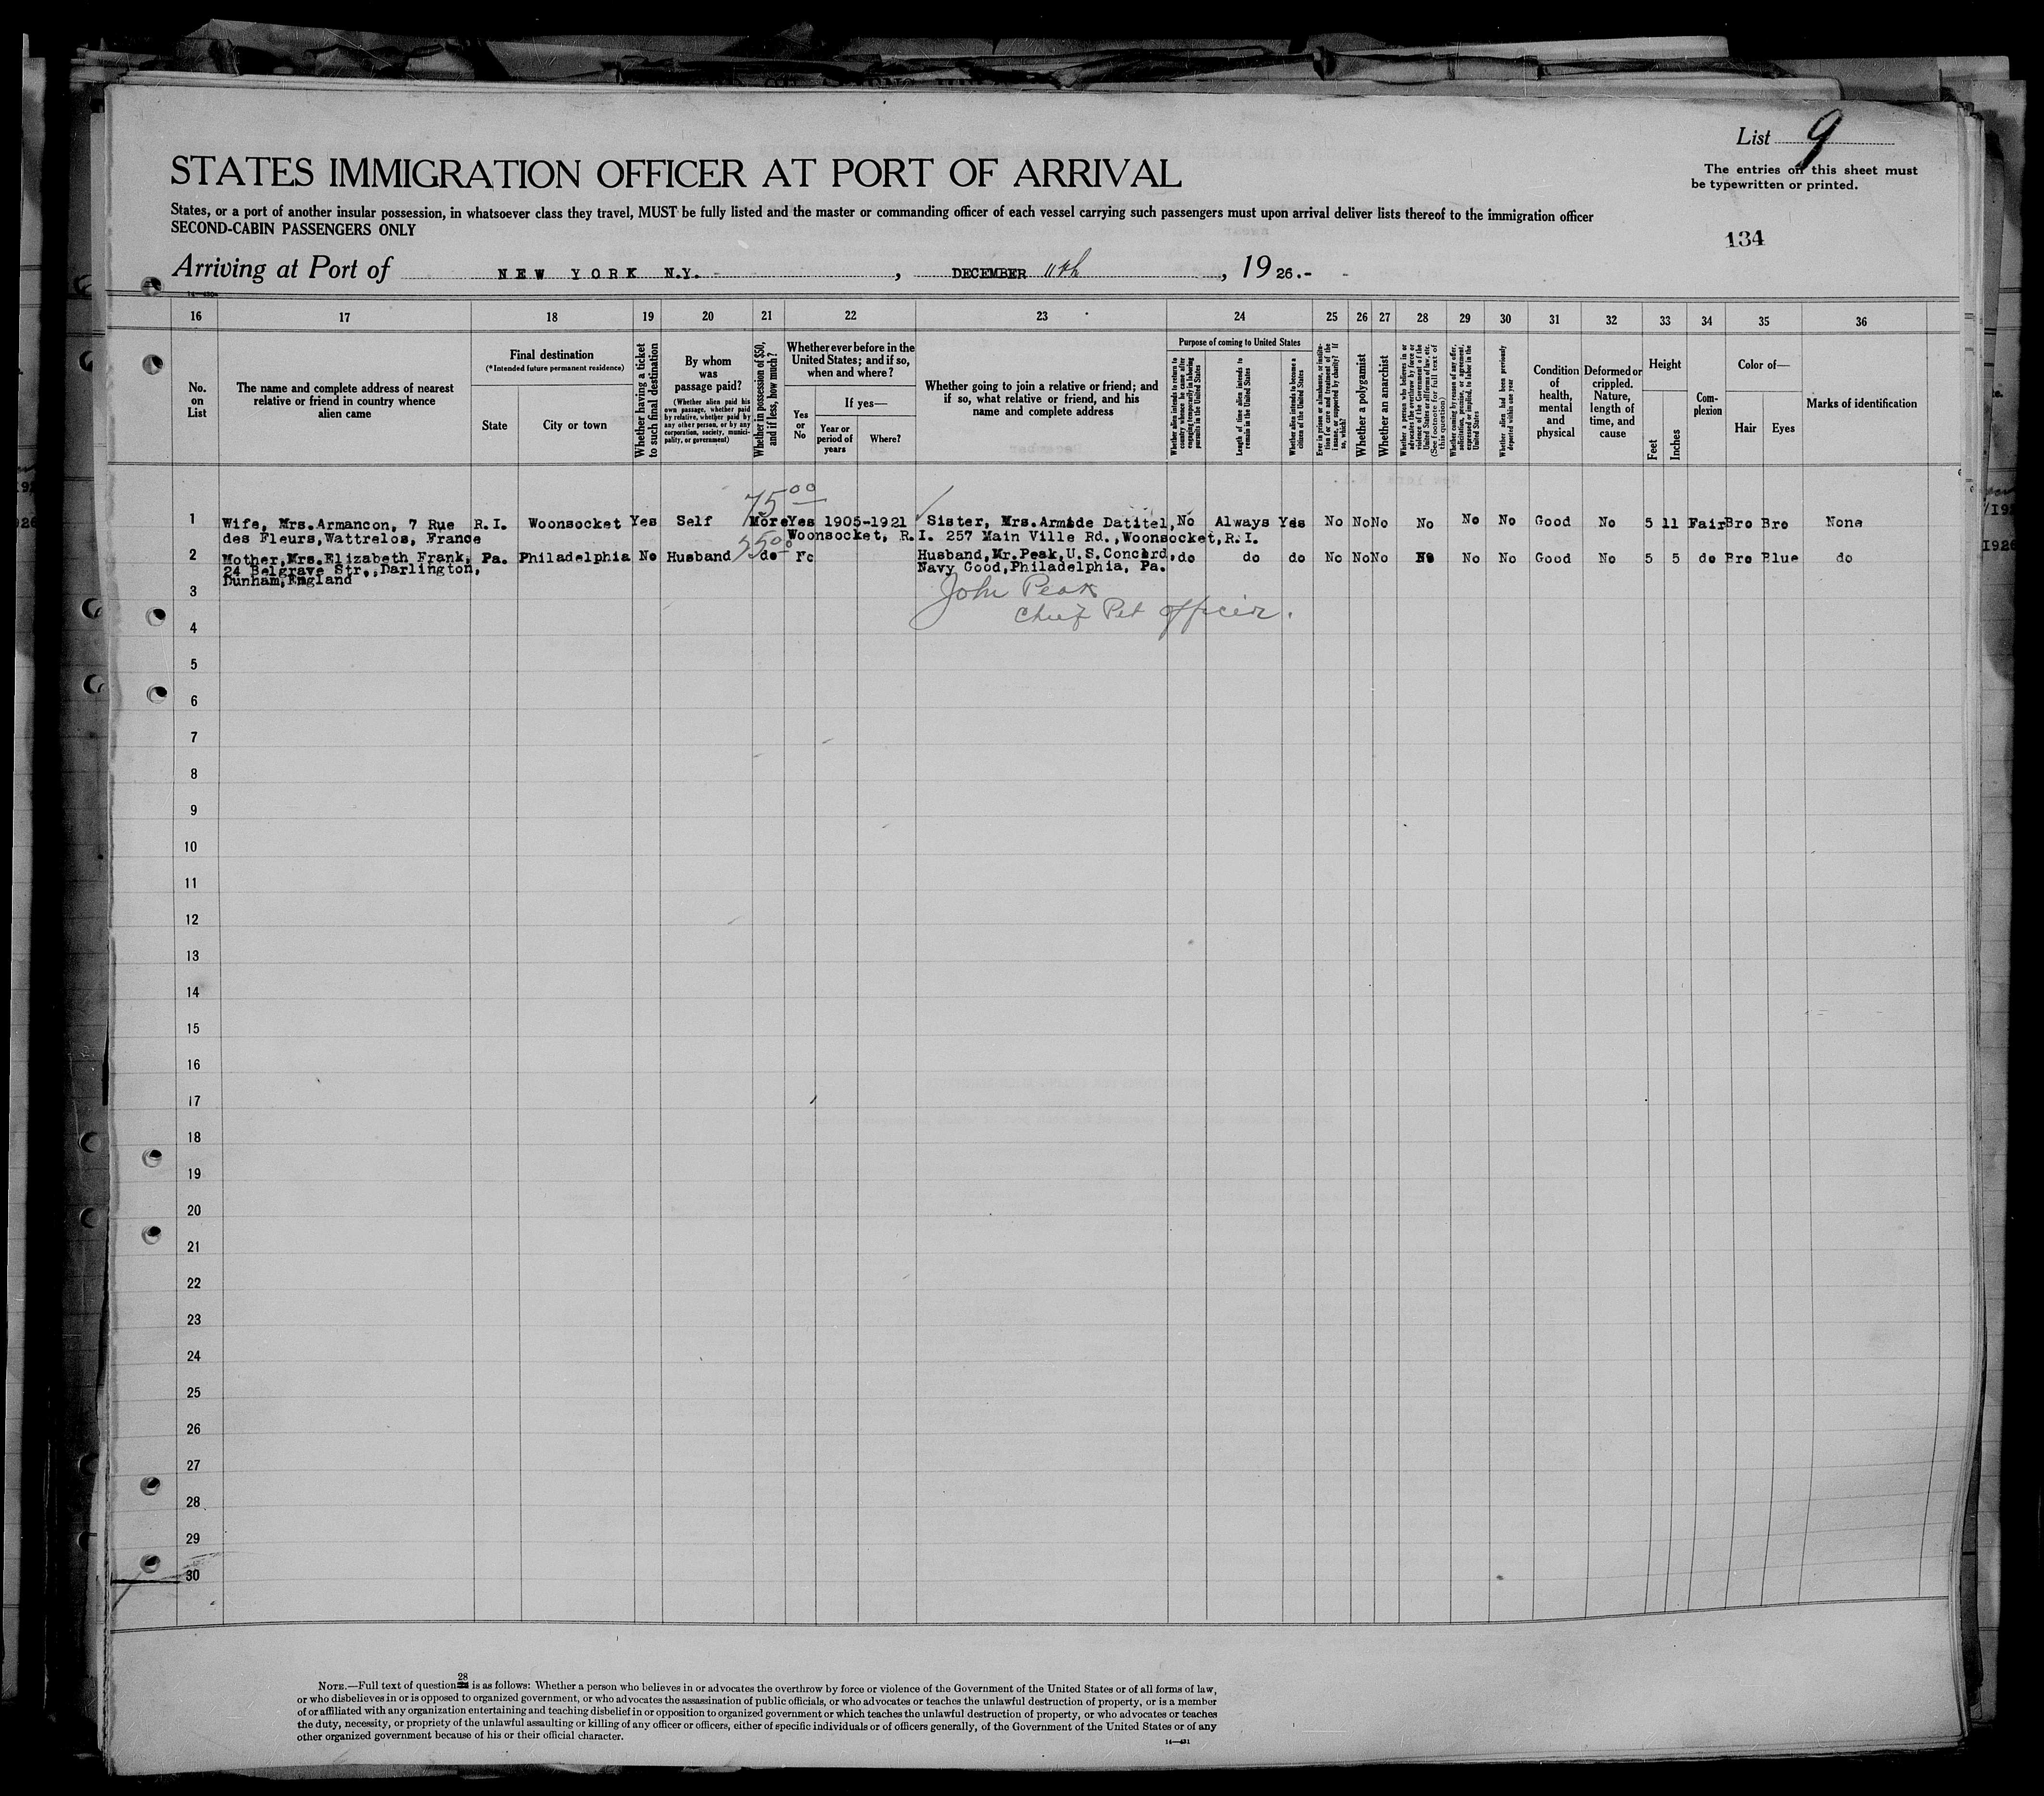 List 9
The entries on this sheet must
be typewritten or printed.
STATES IMMIGRATION OFFICER AT PORT OF ARRIVAL
States, or a port of another insular possession, in whatsoever class they travel, MUST be fully listed and the master or commanding officer of each vessel carrying such passengers must upon arrival deliver lists thereof to the immigration officer
SECOND-CABIN PASSENGERS ONLY
134
Arriving at Port of NEW YORK N.Y. , DECEMBER 11th , 19 26.-
16 17 18 19 20 21 22 23 24 25 26 27 28 29 30 31 32 33 34 35 36
No. on List
The name and complete address of nearest
relative or friend in country whence
alien came
Final destination
(*Intended future permanent residence)
State
City or town
Whether having a ticket
to such final destination
By whom
was
passage paid?
(Whether alien paid his
own passage, whether paid
by relative, whether paid by
any other person, or by any
corporation, society, munici-
pality, or government)
Whether in possession of $50,
and if less, how much?
Whether ever before in the
United States; and if so,
when and where?
Yes
or
No
If yes—
Year or
period of
years
Where?
Whether going to join a relative or friend; and
if so, what relative or friend, and his
name and complete address
Purpose of coming to United States
Whether alien intends to return to
country whence he came after
engaging temporarily in laboring
pursuits in the United States
Length of time alien intends to
remain in the United States
Whether alien intends to become a
citizen of the United States
Ever in prison or almshouse, or institu-
tion for care and treatment of the
insane, or supported by charity? If
so, which?
Whether a polygamist
Whether an anarchist
Whether a person who believes in or
advocates the overthrow by force or
violence of the Government of the
United States or all forms of law, etc.
(See footnote for full text of
this question)
Whether coming by reason of any offer,
solicitation, promise, or agreement,
expressed or implied, to labor in the
United States
Whether alien had been previously
deported within one year
Condition
of
health,
mental
and
physical
Deformed or
crippled.
Nature,
length of
time, and
cause
Height
Feet
Inches
Com-
plexion
Color of—
Hair
Eyes
Marks of identification
75 00
1 Wife, Mrs.Armancon, 7 Rue R.I. Woonsocket Yes Self More Yes 1905-1921 Sister, Mrs.Armide Datitel, No Always Yes No No No No No No Good No 5 11 Fair Bro Bro None
des Fleurs,Wattrelos, France Woonsocket, R.I. 257 Main Ville Rd.,Woonsocket,R.I.
2 Mother,Mrs.Elizabeth Frank, Pa. Philadelphia No Husband do Husband,Mr.Peak,U.S.Concord, do do do No No No No No No Good No 5 5 do Bro Blue do
24 Belgrave Str.,Darlington, Navy Good,Philadelphia, Pa.
Dunham,England
3 John Peak
4 Chief Pet officer.
5
6
7
8
9
10
11
12
13
14
15
16
17
18
19
20
21
22
23
24
25
26
27
28
29
30
28
NOTE.—Full text of question is as follows: Whether a person who believes in or advocates the overthrow by force or violence of the Government of the United States or of all forms of law,
or who disbelieves in or is opposed to organized government, or who advocates the assassination of public officials, or who advocates or teaches the unlawful destruction of property, or is a member
of or affiliated with any organization entertaining and teaching disbelief in or opposition to organized government or which teaches the unlawful destruction of property, or who advocates or teaches
the duty, necessity, or propriety of the unlawful assaulting or killing of any officer or officers, either of specific individuals or of officers generally, of the Government of the United States or of any
other organized government because of his or their official character.
14—431